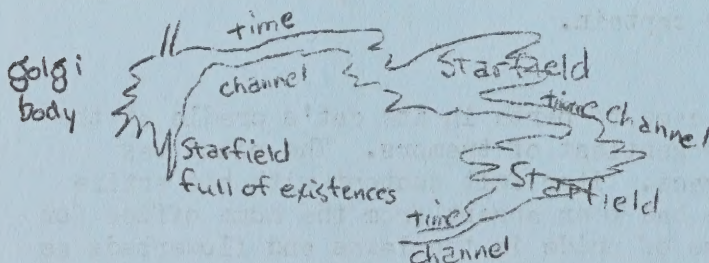 captain.
time
golgi
body
channel
Starfield
time channel
Starfield
full of existences
Starfield
time
channel